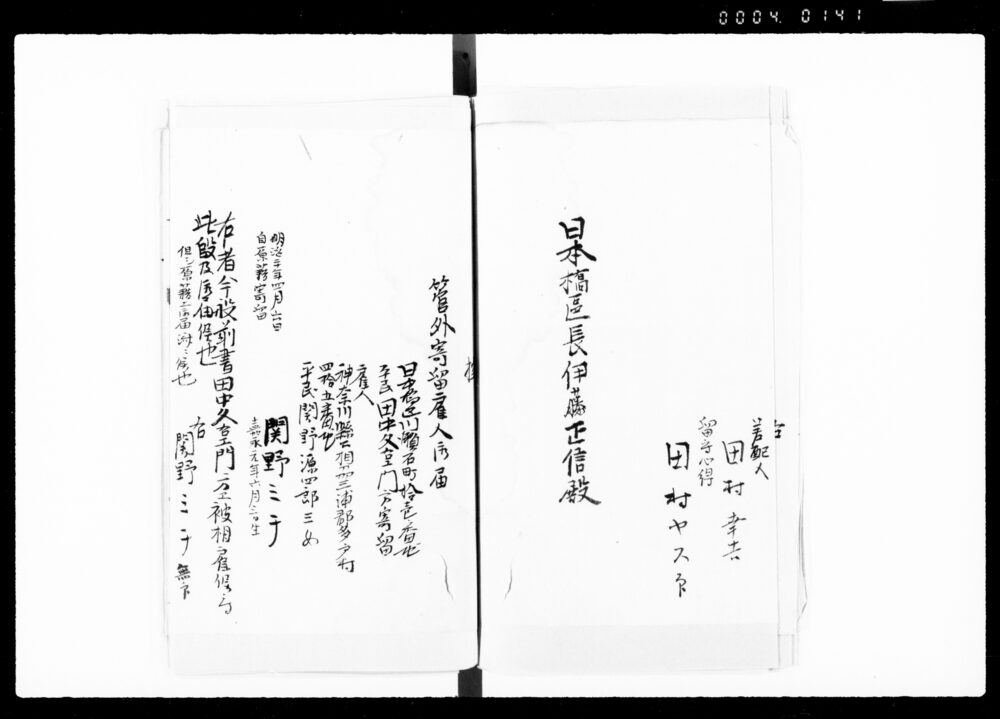 0004. 0141
右
差配人
田村幸吉
留守心得
田村ヤス
日本橋區長伊藤正信殿
管外寄留雇人御届
日本橋區川瀬石町拾壱番地
平民田中久右エ門方寄留
雇人
神奈川縣相州三浦郡多戸村
四拾五番地
平民関野源四郎三女
関野ミチ
嘉永元年六月 日生
明治 年四月 日
自原籍寄留
右者今般前書田中久右エ門方エ被相雇候間
此段及御届候也
但シ原籍 届済 候也
右
関野ミチ無印